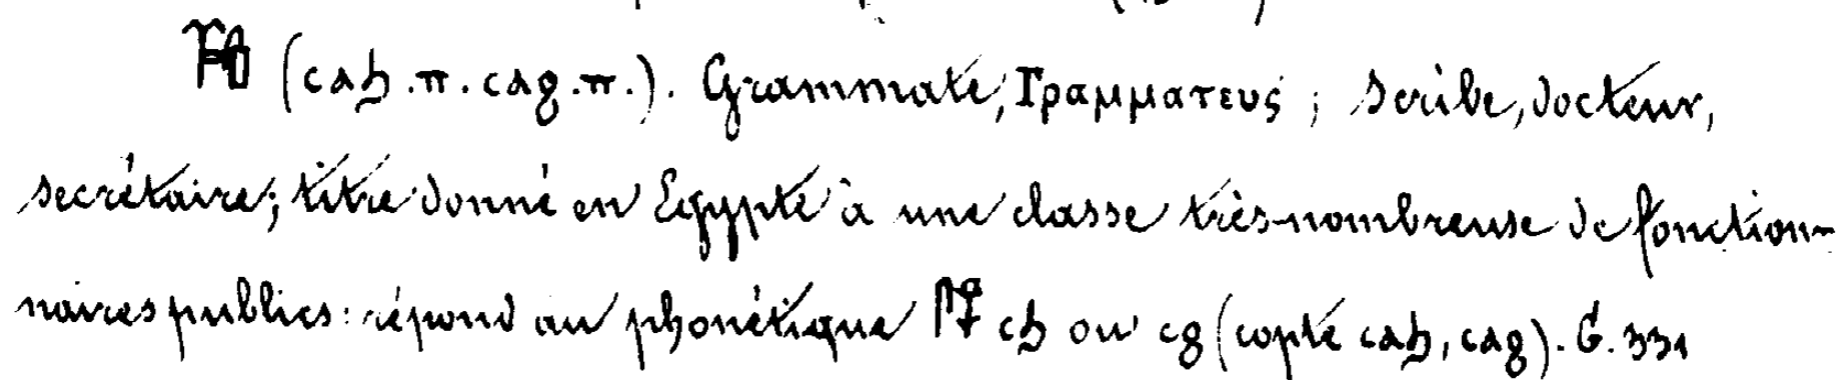 (ⲥⲁϧ.ⲡ. ⲥⲁϩ.ⲡ.). Grammate, Γραμματευς; scribe, docteur,
secrétaire; titre donné en Egypte à une classe très-nombreuse de fonction-
naires publics: répond au phonétique ⲥϧ ou ⲥϩ (copte ⲥⲁϧ, ⲥⲁϩ). G. 331